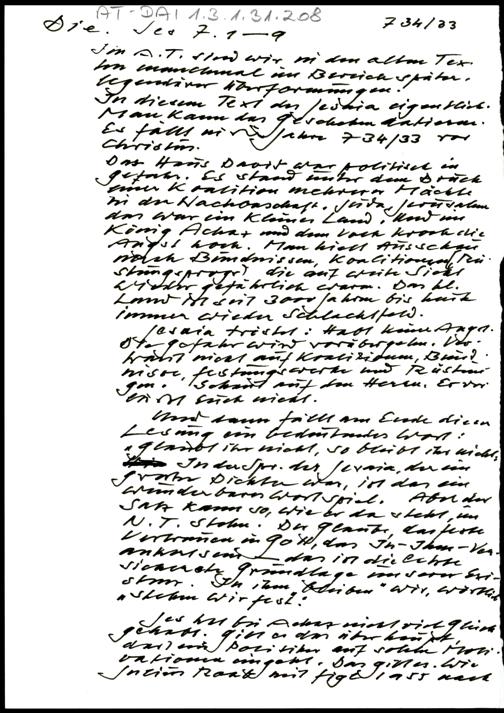 AT-DAI 1.3.1.31.208
Die. Jes 7. 1–9 734/33
Im A.T. sind wir in den alten Tex-
ten manchmal im Bereich später,
legendärer Überformungen.
In diesem Text des Jesaia eigentlich.
Man kann das Geschehen datieren.
Es fällt in Jahre 734/33 vor
Christus.
Das Haus David war politisch in
Gefahr. Es stand unter dem Druck
einer Koalition mehrerer Mächte
in der Nachbarschaft. Juda, Jerusalem
das war ein kleines Land. Und im
König Achaz und dem Volk kroch die
Angst hoch. Man hielt Ausschau
nach Bündnissen, Koalitionen, Rü-
stungsprogr. die auf weite Sicht
wieder gefährlich waren. Das hl.
Land ist seit 3000 Jahren bis heute
immer wieder Schlachtfeld.
Jesaia tröstet: Habt keine Angst.
Die Gefahr wird vorübergehn. Ver-
traut nicht auf Koalitionen, Bünd-
nisse, Festungswerke und Rüstun-
gen. Schaut auf den Herrn. Er ver-
Euch nicht.
Und dann fällt am Ende dieser
Lesung ein bedeutendes Wort:
"Glaubt ihr nicht, so bleibt ihr nicht,
In der Spr. des Jesaia, der ein
großer Dichter war, ist das ein
wunderbares Wortspiel. Aber der
Satz kann so, wie er da steht, im
N.T. stehn. Der Glaube, das feste
Vertrauen in Gott, das In-Ihm-Ver-
ankertsein — das ist die letzte
sicherste Grundlage unserer Exi-
stenz. In ihm "bleiben" wir, wirklich
"stehn wir fest".
Jes hat bei Achaz nicht viel Glück
gehabt. Gibt es das überhaupt,
daß ein Politiker auf solche Moti-
vationen eingeht. Das gilt es. Wie
Julius Raab mit Figl 1955 nach